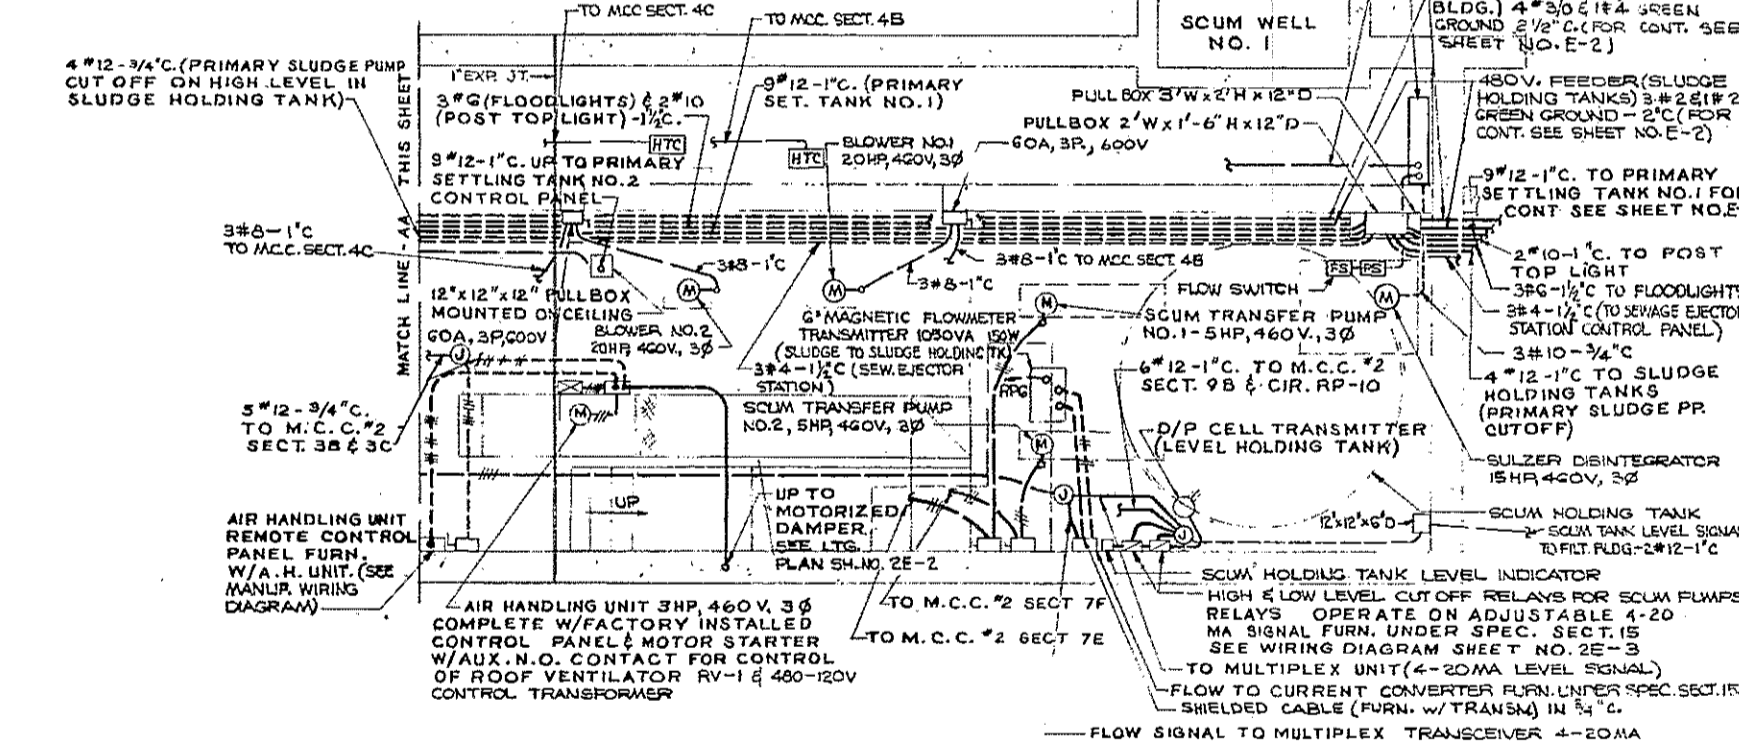 TO MCC SECT. 4C
TO MCC. SECT. 4B
SCUM WELL
NO. 1
BLDG.) 4 #3/0 & 1#4 GREEN
GROUND 2 1/2" C. (FOR CONT. SEE
SHEET NO. E-2)
4 #12-3/4"C. (PRIMARY SLUDGE PUMP
CUT OFF ON HIGH LEVEL IN
SLUDGE HOLDING TANK)
MATCH LINE - AA THIS SHEET
1" EXP. JT.
3 #6 (FLOODLIGHTS) & 2 #10
(POST TOP LIGHT) - 1 1/2"C.
9 #12-1"C. (PRIMARY
SET. TANK NO. 1)
PULL BOX 3'W x 2'H x 12"D
PULLBOX 2'W x 1'-6"H x 12"D
480V. FEEDER (SLUDGE
HOLDING TANKS) 3-#2 & 1#2
GREEN GROUND - 2"C (FOR
CONT. SEE SHEET NO. E-2)
HTC
HTC
BLOWER NO. 1
20HP, 460V, 3Ø
60A, 3P., 600V
9 #12-1"C. UP TO PRIMARY
SETTLING TANK NO. 2
CONTROL PANEL
9 #12-1"C. TO PRIMARY
SETTLING TANK NO. 1 FOR
CONT SEE SHEET NO. E-
3#8-1"C
TO M.C.C. SECT. 4C
3#8-1"C
3#8-1"C TO MCC. SECT. 4B
3#8-1"C
2 #10-1"C. TO POST
TOP LIGHT
3#6-1 1/2"C TO FLOODLIGHTS
3#4-1 1/2"C (TO SEWAGE EJECTOR
STATION CONTROL PANEL)
3#10-3/4"C
4 #12-1"C TO SLUDGE
HOLDING TANKS
(PRIMARY SLUDGE PP.
CUTOFF)
FS
FS
FLOW SWITCH
M
M
M
M
12"x12"x12" PULLBOX
MOUNTED ON CEILING
60A, 3P, 600V
J
BLOWER NO. 2
20HP, 460V., 3Ø
6" MAGNETIC FLOWMETER
TRANSMITTER 1050VA 150W
(SLUDGE TO SLUDGE HOLDING TK)
3#4-1 1/2"C (SEW. EJECTOR
STATION)
SCUM TRANSFER PUMP
NO. 1-5HP, 460V, 3Ø
6 #12-1"C. TO M.C.C. #2
SECT. 9B & CIR. RP-10
RPG
5 #12-3/4"C.
TO M.C.C. #2
SECT. 3B & 3C
M
SCUM TRANSFER PUMP
NO. 2, 5HP, 460V, 3Ø
M
D/P CELL TRANSMITTER
(LEVEL HOLDING TANK)
SULZER DISINTEGRATOR
15HP, 460V, 3Ø
UP
UP TO
MOTORIZED
DAMPER
SEE LTG.
PLAN SH. NO. 2E-2
J
J
12"x12"x6"D
SCUM HOLDING TANK
SCUM TANK LEVEL SIGNAL
TO FILT. BLDG.-2#12-1"C
AIR HANDLING UNIT
REMOTE CONTROL
PANEL FURN.
W/A.H. UNIT. (SEE
MANUF. WIRING
DIAGRAM)
AIR HANDLING UNIT 3HP, 460V, 3Ø
COMPLETE W/FACTORY INSTALLED
CONTROL PANEL & MOTOR STARTER
W/AUX. N.O. CONTACT FOR CONTROL
OF ROOF VENTILATOR RV-1 & 480-120V
CONTROL TRANSFORMER
TO M.C.C. #2 SECT 7F
TO M.C.C. #2 SECT 7E
SCUM HOLDING TANK LEVEL INDICATOR
HIGH & LOW LEVEL CUT OFF RELAYS FOR SCUM PUMPS
RELAYS OPERATE ON ADJUSTABLE 4-20
MA SIGNAL FURN. UNDER SPEC. SECT. 15
SEE WIRING DIAGRAM SHEET NO. 2E-3
TO MULTIPLEX UNIT (4-20MA LEVEL SIGNAL)
FLOW TO CURRENT CONVERTER FURN. UNDER SPEC. SECT. 15
SHIELDED CABLE (FURN. W/TRANSM) IN 3/4"C.
FLOW SIGNAL TO MULTIPLEX TRANSCEIVER 4-20MA